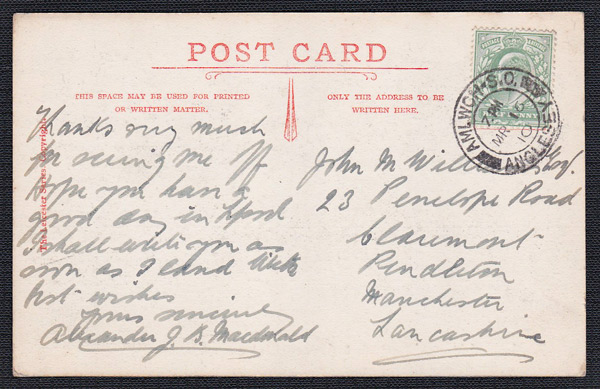 POST CARD
THIS SPACE MAY BE USED FOR PRINTED
OR WRITTEN MATTER.
ONLY THE ADDRESS TO BE
WRITTEN HERE.
The Leicester Series Copyright
Thanks very much
for seeing me off
Hope you have a
good day in L'pool
I shall write you as
soon as I land With
best wishes
Yours sincerely
Alexander J. B. Macdonald
John M Williams Esq.
23 Penelope Road
Claremont
Pendleton
Manchester
Lancashire
AMLWCH S.O.
ANGLESEY
MR 16
10
PENNY